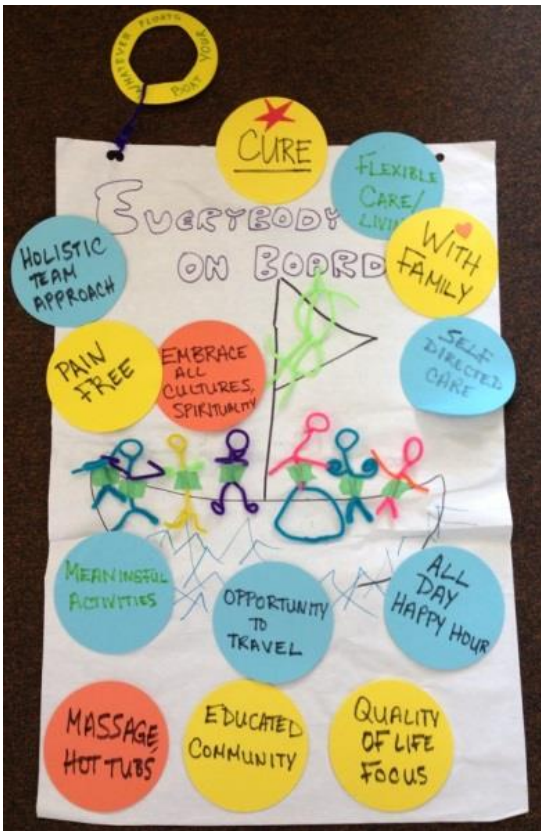 WHATEVER FLOATS
YOUR
BOAT
CURE
FLEXIBLE
CARE/
LIVING
EVERYBODY
ON BOARD
WITH
FAMILY
HOLISTIC
TEAM
APPROACH
PAIN
FREE
EMBRACE
ALL
CULTURES,
SPIRITUALITY
SELF
DIRECTED
CARE
MEANINGFUL
ACTIVITIES
OPPORTUNITY
TO
TRAVEL
ALL
DAY
HAPPY HOUR
MASSAGE
HOT TUBS
EDUCATED
COMMUNITY
QUALITY
OF LIFE
FOCUS